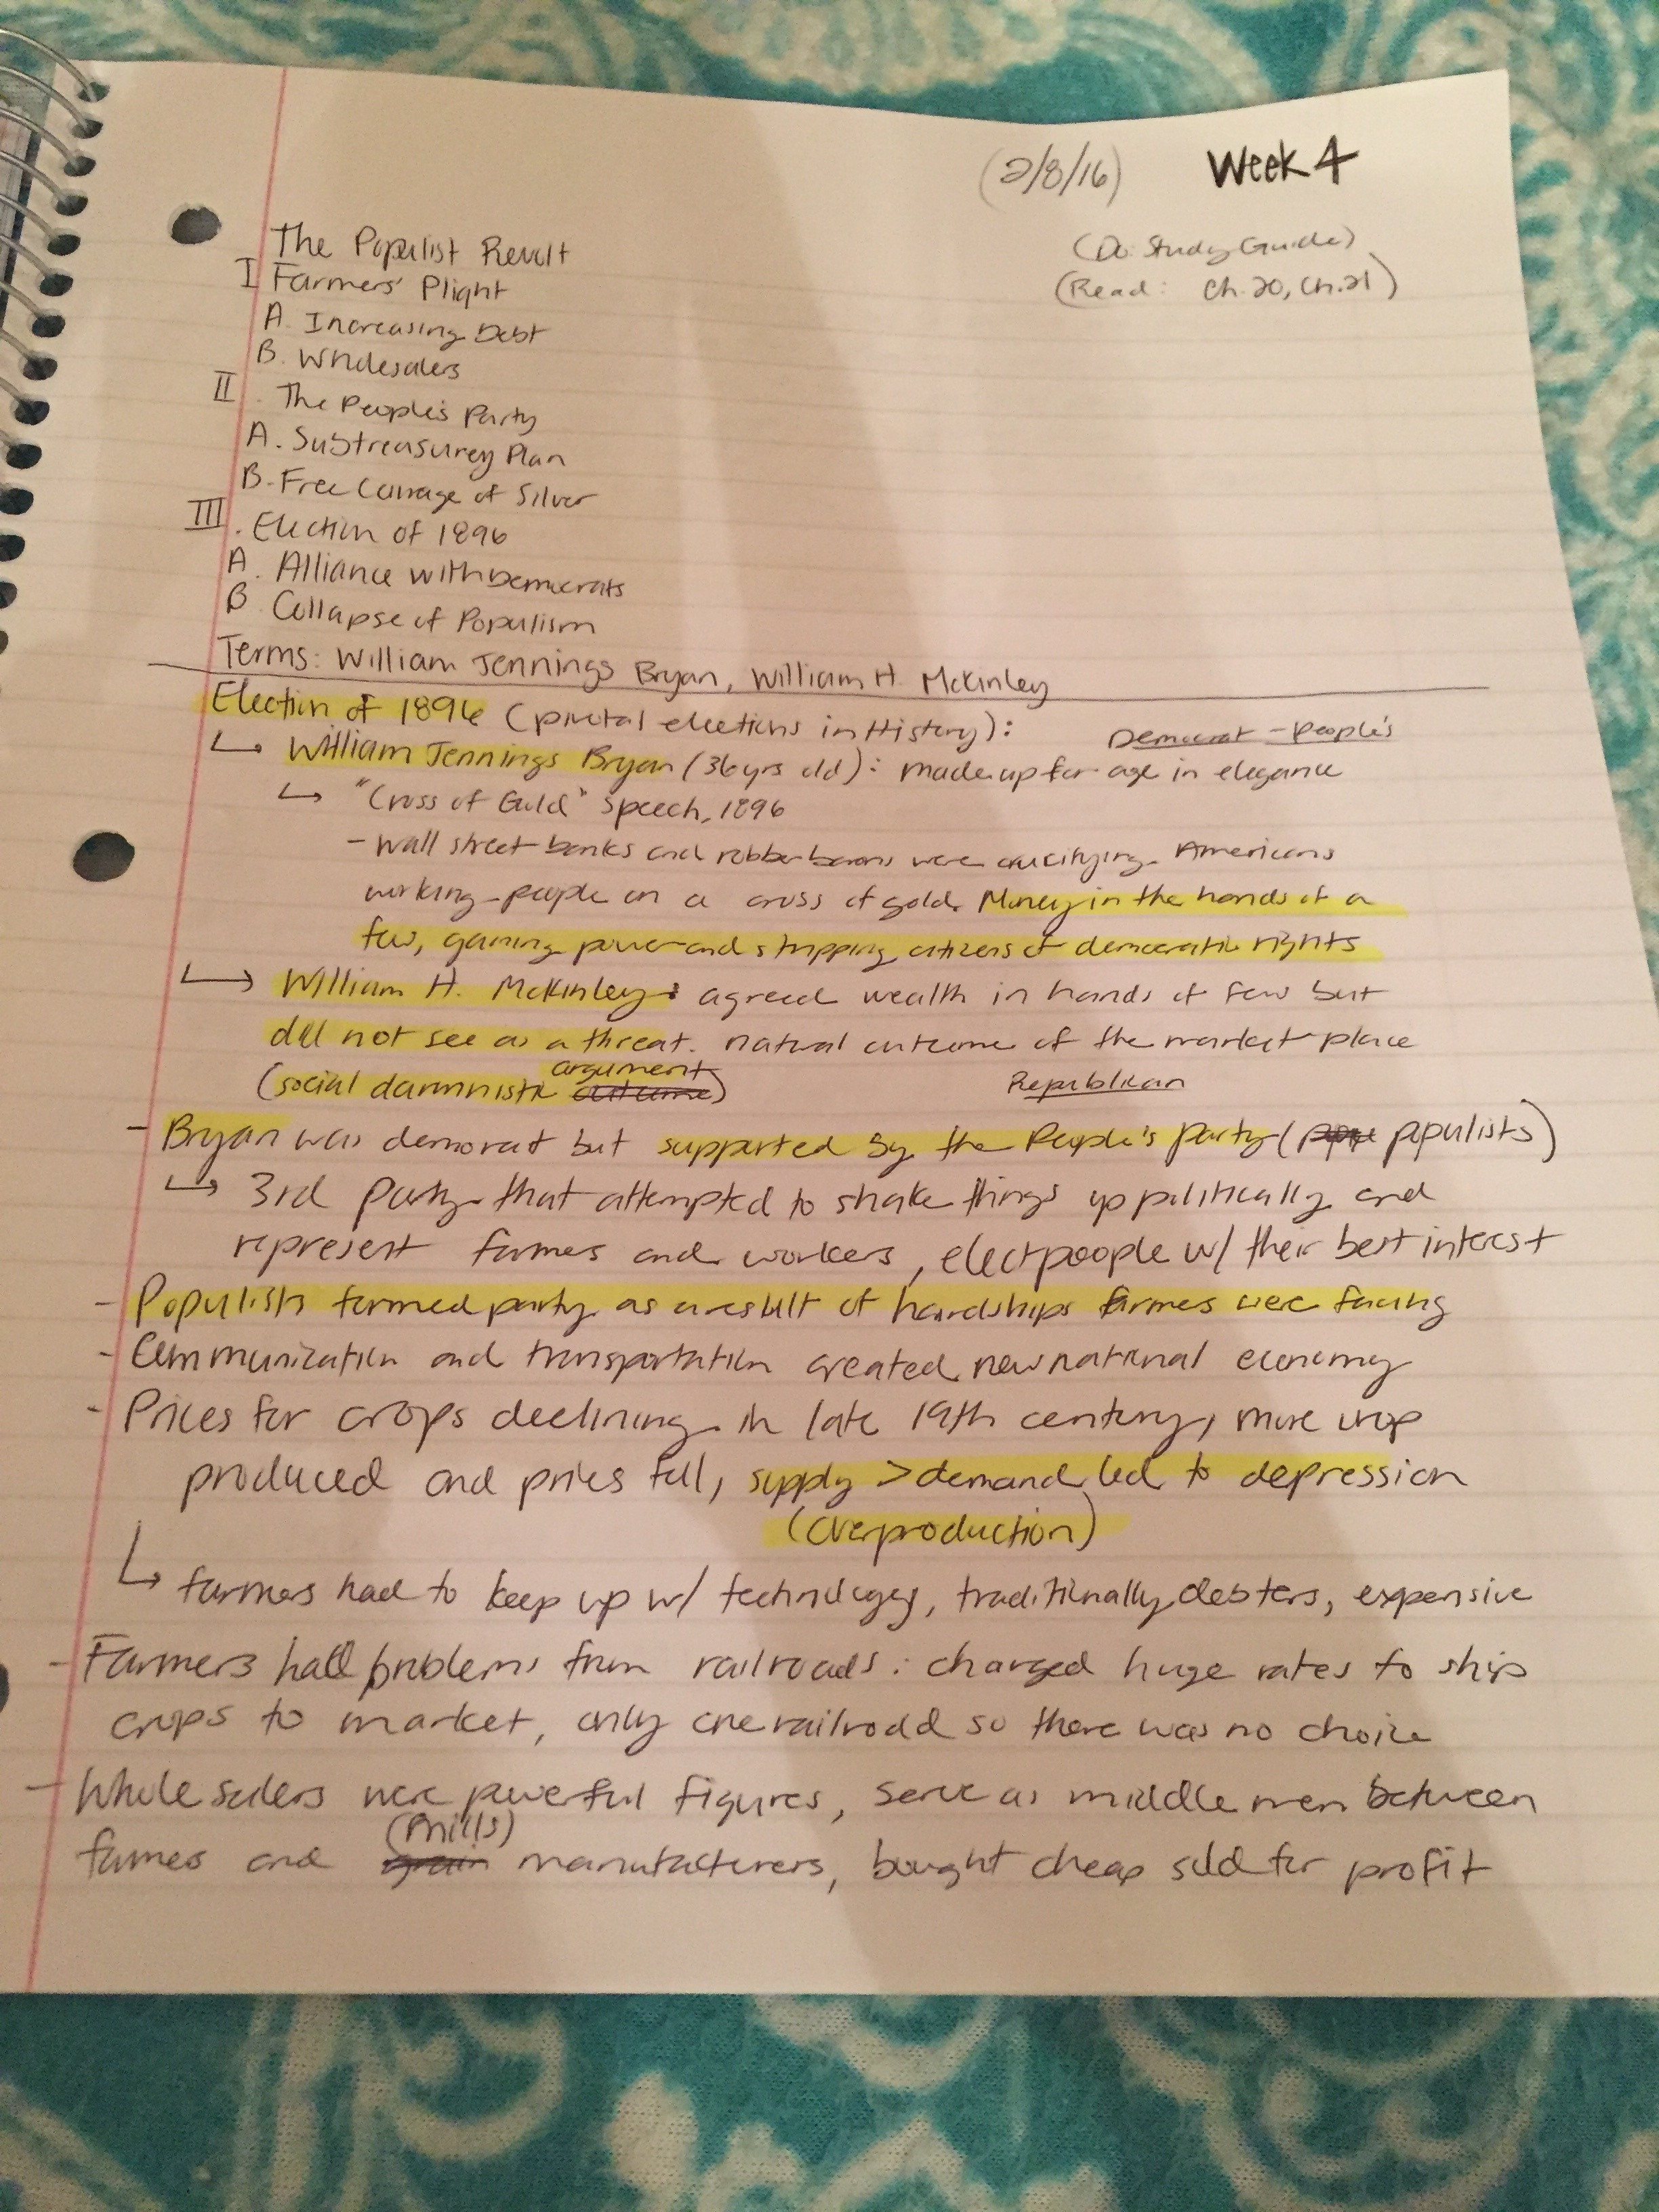 (2/8/16) Week 4
(Do Study Guide)
(Read: Ch.20, Ch.21)
The Populist Revolt
I Farmers' Plight
A. Increasing Debt
B. Wholesalers
II. The People's Party
A. Subtreasurey Plan
B. Free Coinage of Silver
III. Election of 1896
A. Alliance with Democrats
B. Collapse of Populism
Terms: William Jennings Bryan, William H. McKinley
Election of 1896 (pivotal elections in History):
Democrat - People's
↳ William Jennings Bryan (36yrs old): made up for age in elegance
↳ "Cross of Gold" Speech, 1896
- Wall street banks and robber barons were crucifying Americans
working-people on a cross of gold. Money in the hands of a
few, gaining power and stripping citizens of democratic rights
↳ William H. McKinley: agreed wealth in hands of few but
did not see as a threat. natural outcome of the market place
(social darwinistic argument outcome)
Republican
- Bryan was democrat but supported by the People's Party (populists)
↳ 3rd party that attempted to shake things up politically and
represent farmes and workers, elect people w/ their best interest
- Populists formed party as a result of hardships farmes were facing
- Communization and transportation created new national economy
- Prices for crops declining in late 19th century, more crop
produced and prices fell, supply > demand led to depression
(overproduction)
↳ farmers had to keep up w/ technology, traditionally debters, expensive
- Farmers had problems from railroads: charged huge rates to ship
crops to market, only one railroad so there was no choice
- Wholesalers were powerful figures, serve as middle men between
(mills)
farmes and grain manufacturers, bought cheap sold for profit